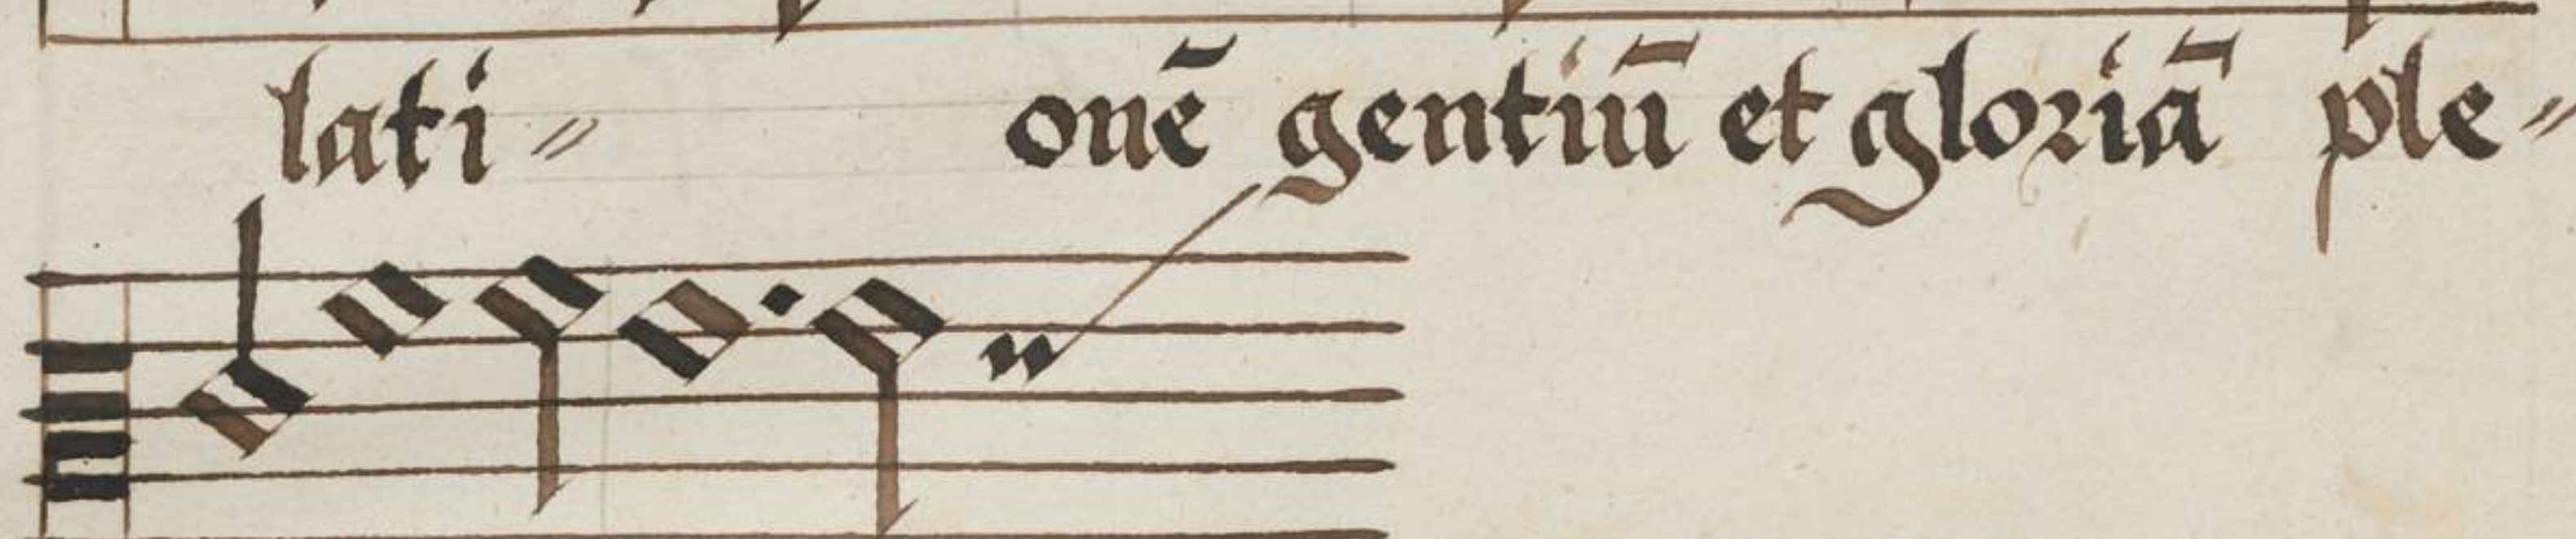 lati⸗ onē gentiū et gloriā ple⸗